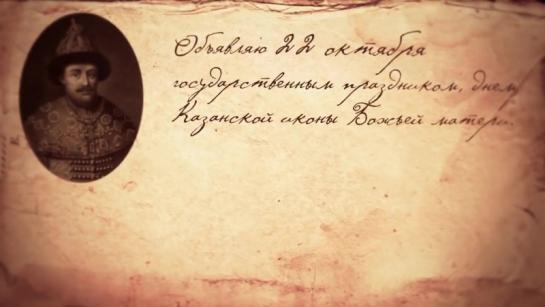 Объявляю 22 октября
государственным праздником, днем
Казанской иконы Божьей матери.